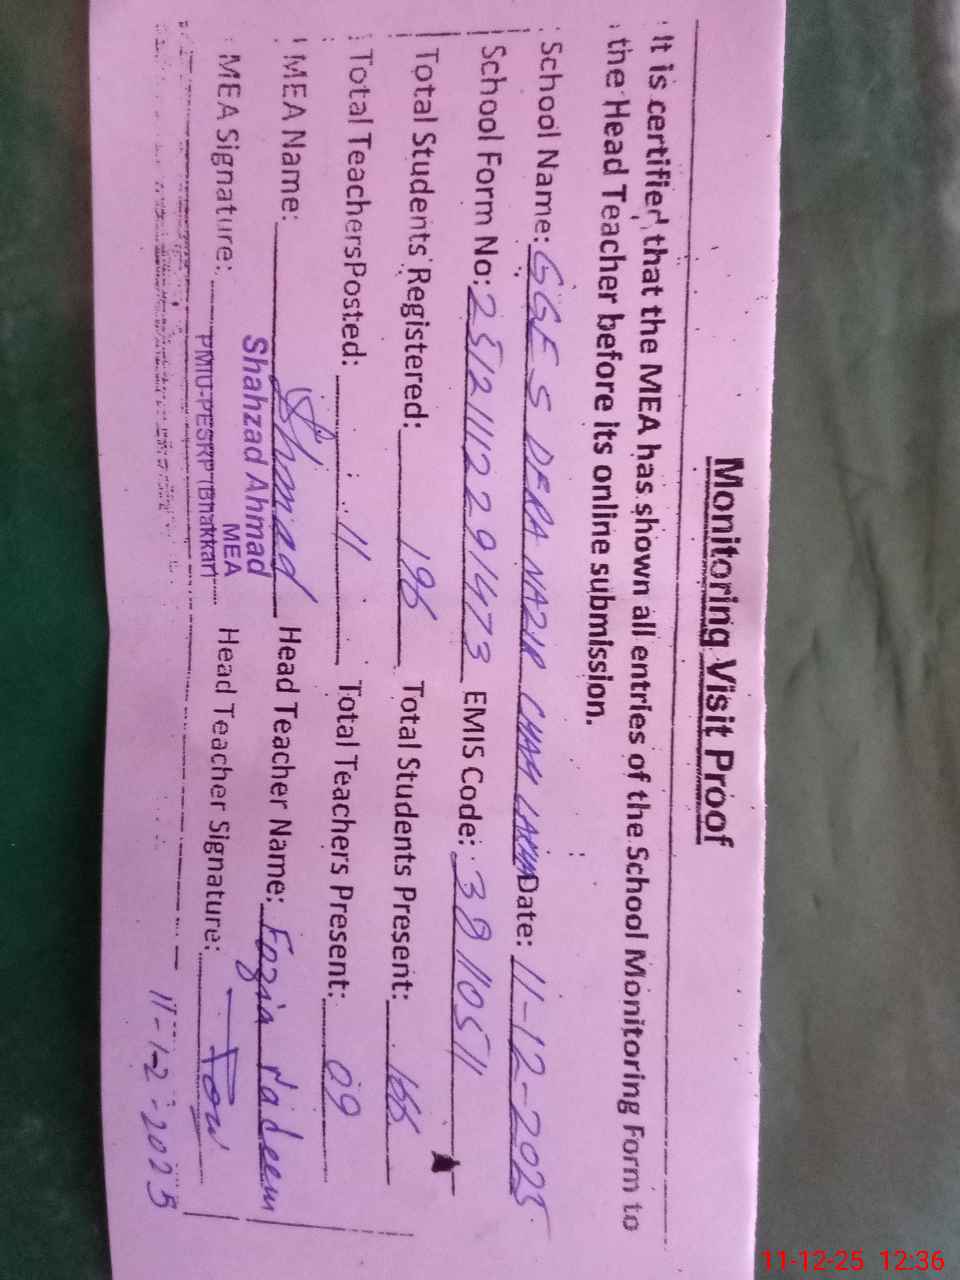 Monitoring Visit Proof
It is certified that the MEA has shown all entries of the School Monitoring Form to
the Head Teacher before its online submission.
School Name: GGES DERA NAZIR CHAH Date: 11-12-2025
School Form No: 251211122 91473 EMIS Code: 38110511
Total Students Registered: 196 Total Students Present: 166
Total TeachersPosted: 11 Total Teachers Present: 09
MEA Name: Ahmad Head Teacher Name: Fozia Nadeem
Shahzad Ahmad
MEA
MEA Signature: PMIU-PESRP (Bhakkar) Head Teacher Signature:
11-12-2025
11-12-25 12:36